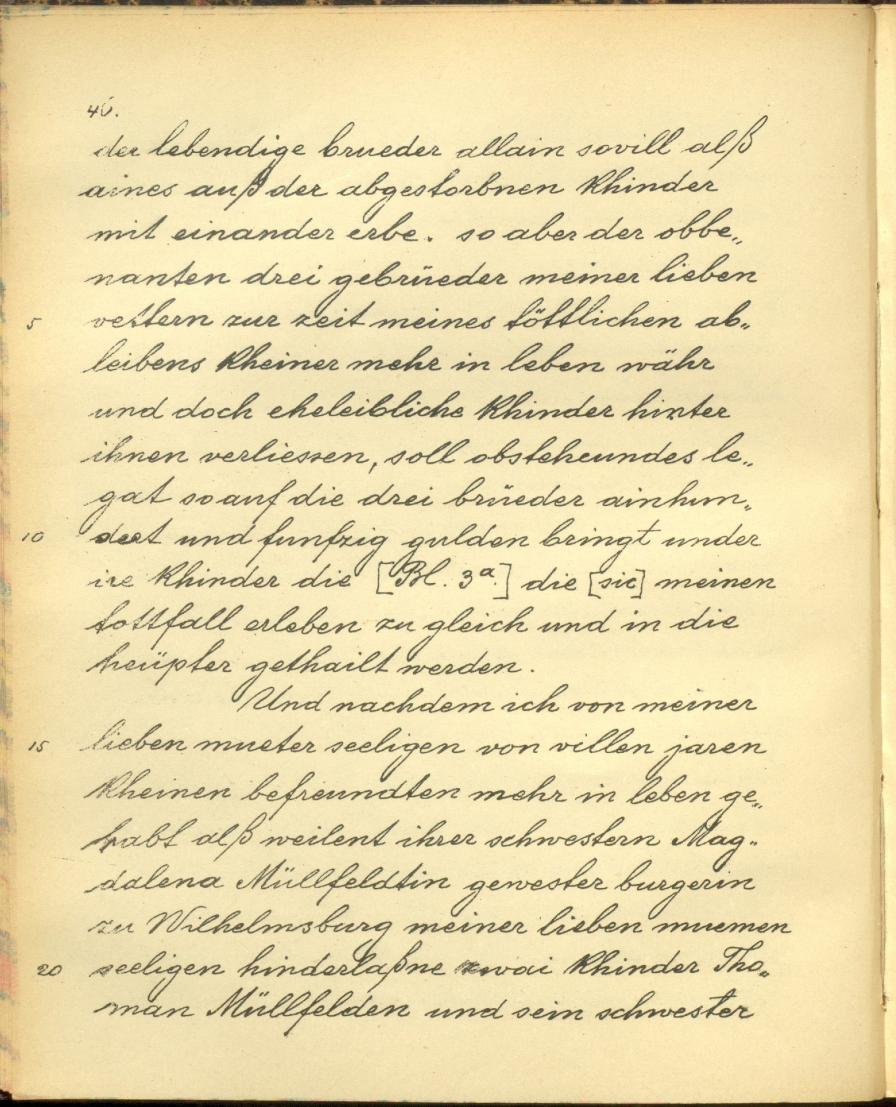 46.
der lebendige brueder allain sovill alß
aines auß der abgestorbnen khinder
mit einander erbe. so aber der obbe„
nanten drei gebrüeder meiner lieben
5 vettern zur zeit meines töttlichen ab„
leibens kheiner mehr in leben währ
und doch eheleibliche khinder hinter
ihnen verliessen, soll obsteheundes le„
gat so auf die drei brüeder ainhun„
10 dert und funfzig gulden bringt under
ire khinder die [Bl. 3ª.] die [sic] meinen
tottfall erleben zu gleich und in die
heüpter gethailt werden.
Und nachdem ich von meiner
15 lieben mueter seeligen von villen jaren
kheinen befreundten mehr in leben ge„
habt alß weilent ihrer schwestern Mag„
dalena Müllfeldtin gewester burgerin
zu Wilhelmsburg meiner lieben muemen
20 seeligen hinderlaßne zwai khinder Tho„
man Müllfelden und sein schwester